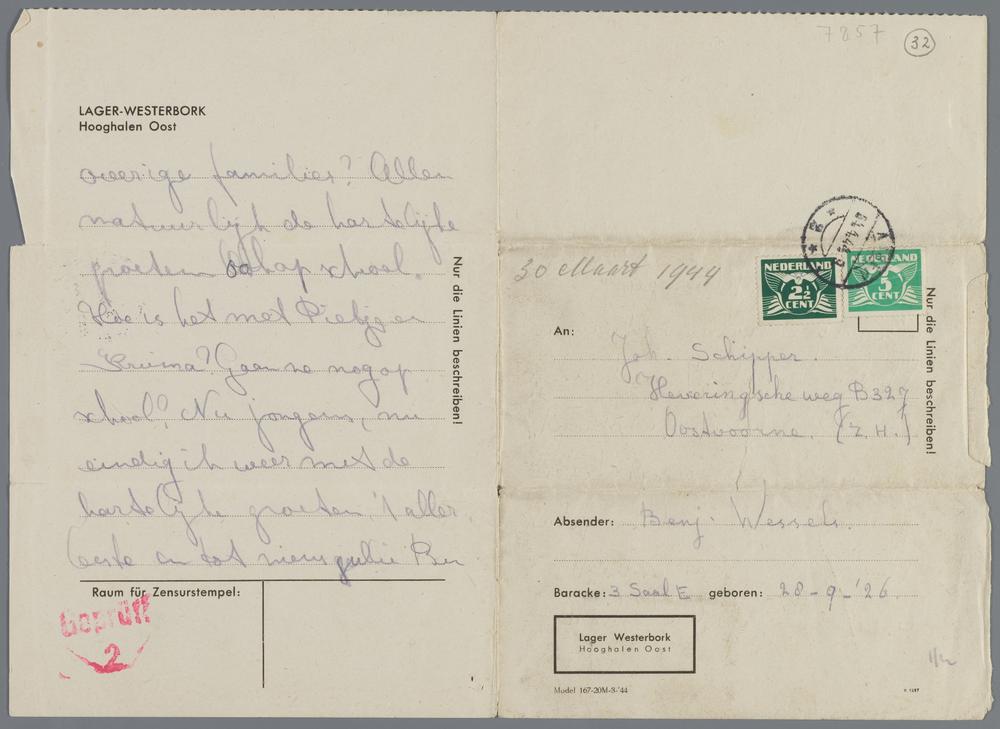 7857
32
LAGER-WESTERBORK
Hooghalen Oost
overige families? Allen
natuurlijk de hartelijke
groeten ook op school.
Hoe is het met Pietje en
? Gaan ze nog op
school? Nu jongens, nu
eindig ik weer met de
hartelijke groeten 't aller
beste en tot ziens jullie Ben
Nur die Linien beschreiben!
Raum für Zensurstempel:
Geprüft
2
30 Maart 1944
NEDERLAND
2½
CENT
NEDERLAND
5
CENT
An:
Joh. Schipper.
Heveringscheweg B327
Oostvoorne. (Z.H.)
Nur die Linien beschreiben!
Absender: Benj. Wessels.
Baracke: 3 Saal E geboren: 28-9-'26.
Lager Westerbork
Hooghalen Oost
Model 167-20M-3-'44